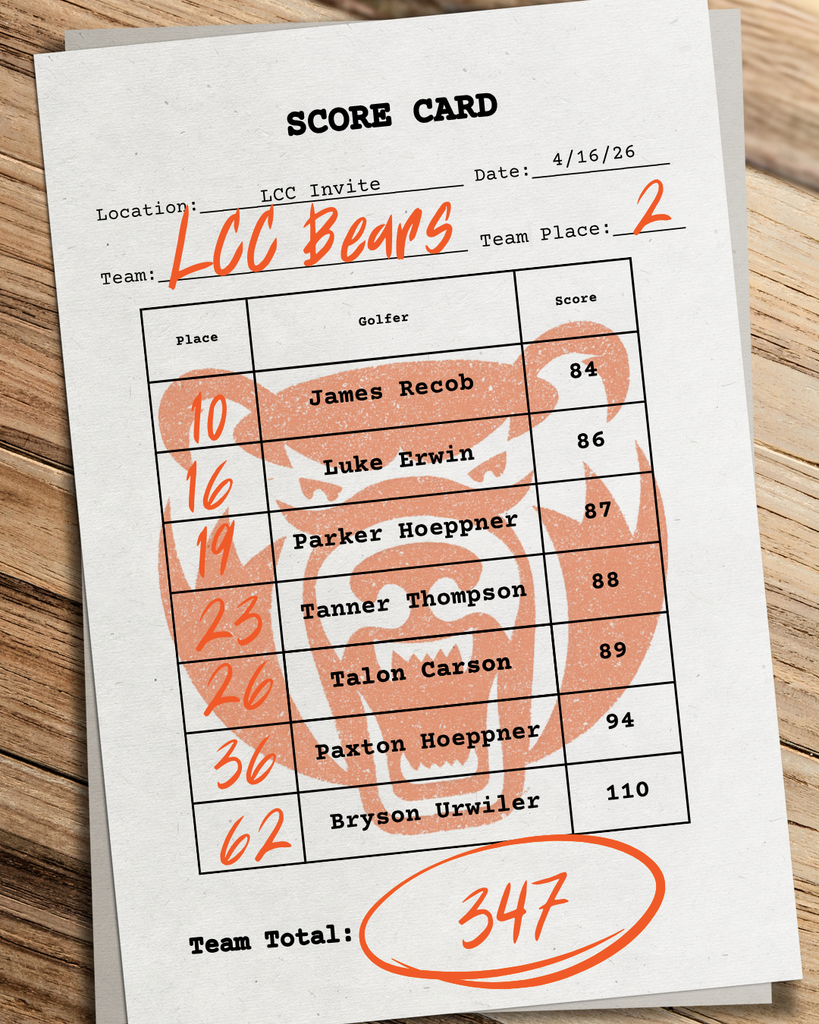 SCORE CARD
Location: LCC Invite Date: 4/16/26
Team: LCC Bears Team Place: 2
Place Golfer Score
10 James Recob 84
16 Luke Erwin 86
19 Parker Hoeppner 87
23 Tanner Thompson 88
26 Talon Carson 89
36 Paxton Hoeppner 94
62 Bryson Urwiler 110
Team Total: 347